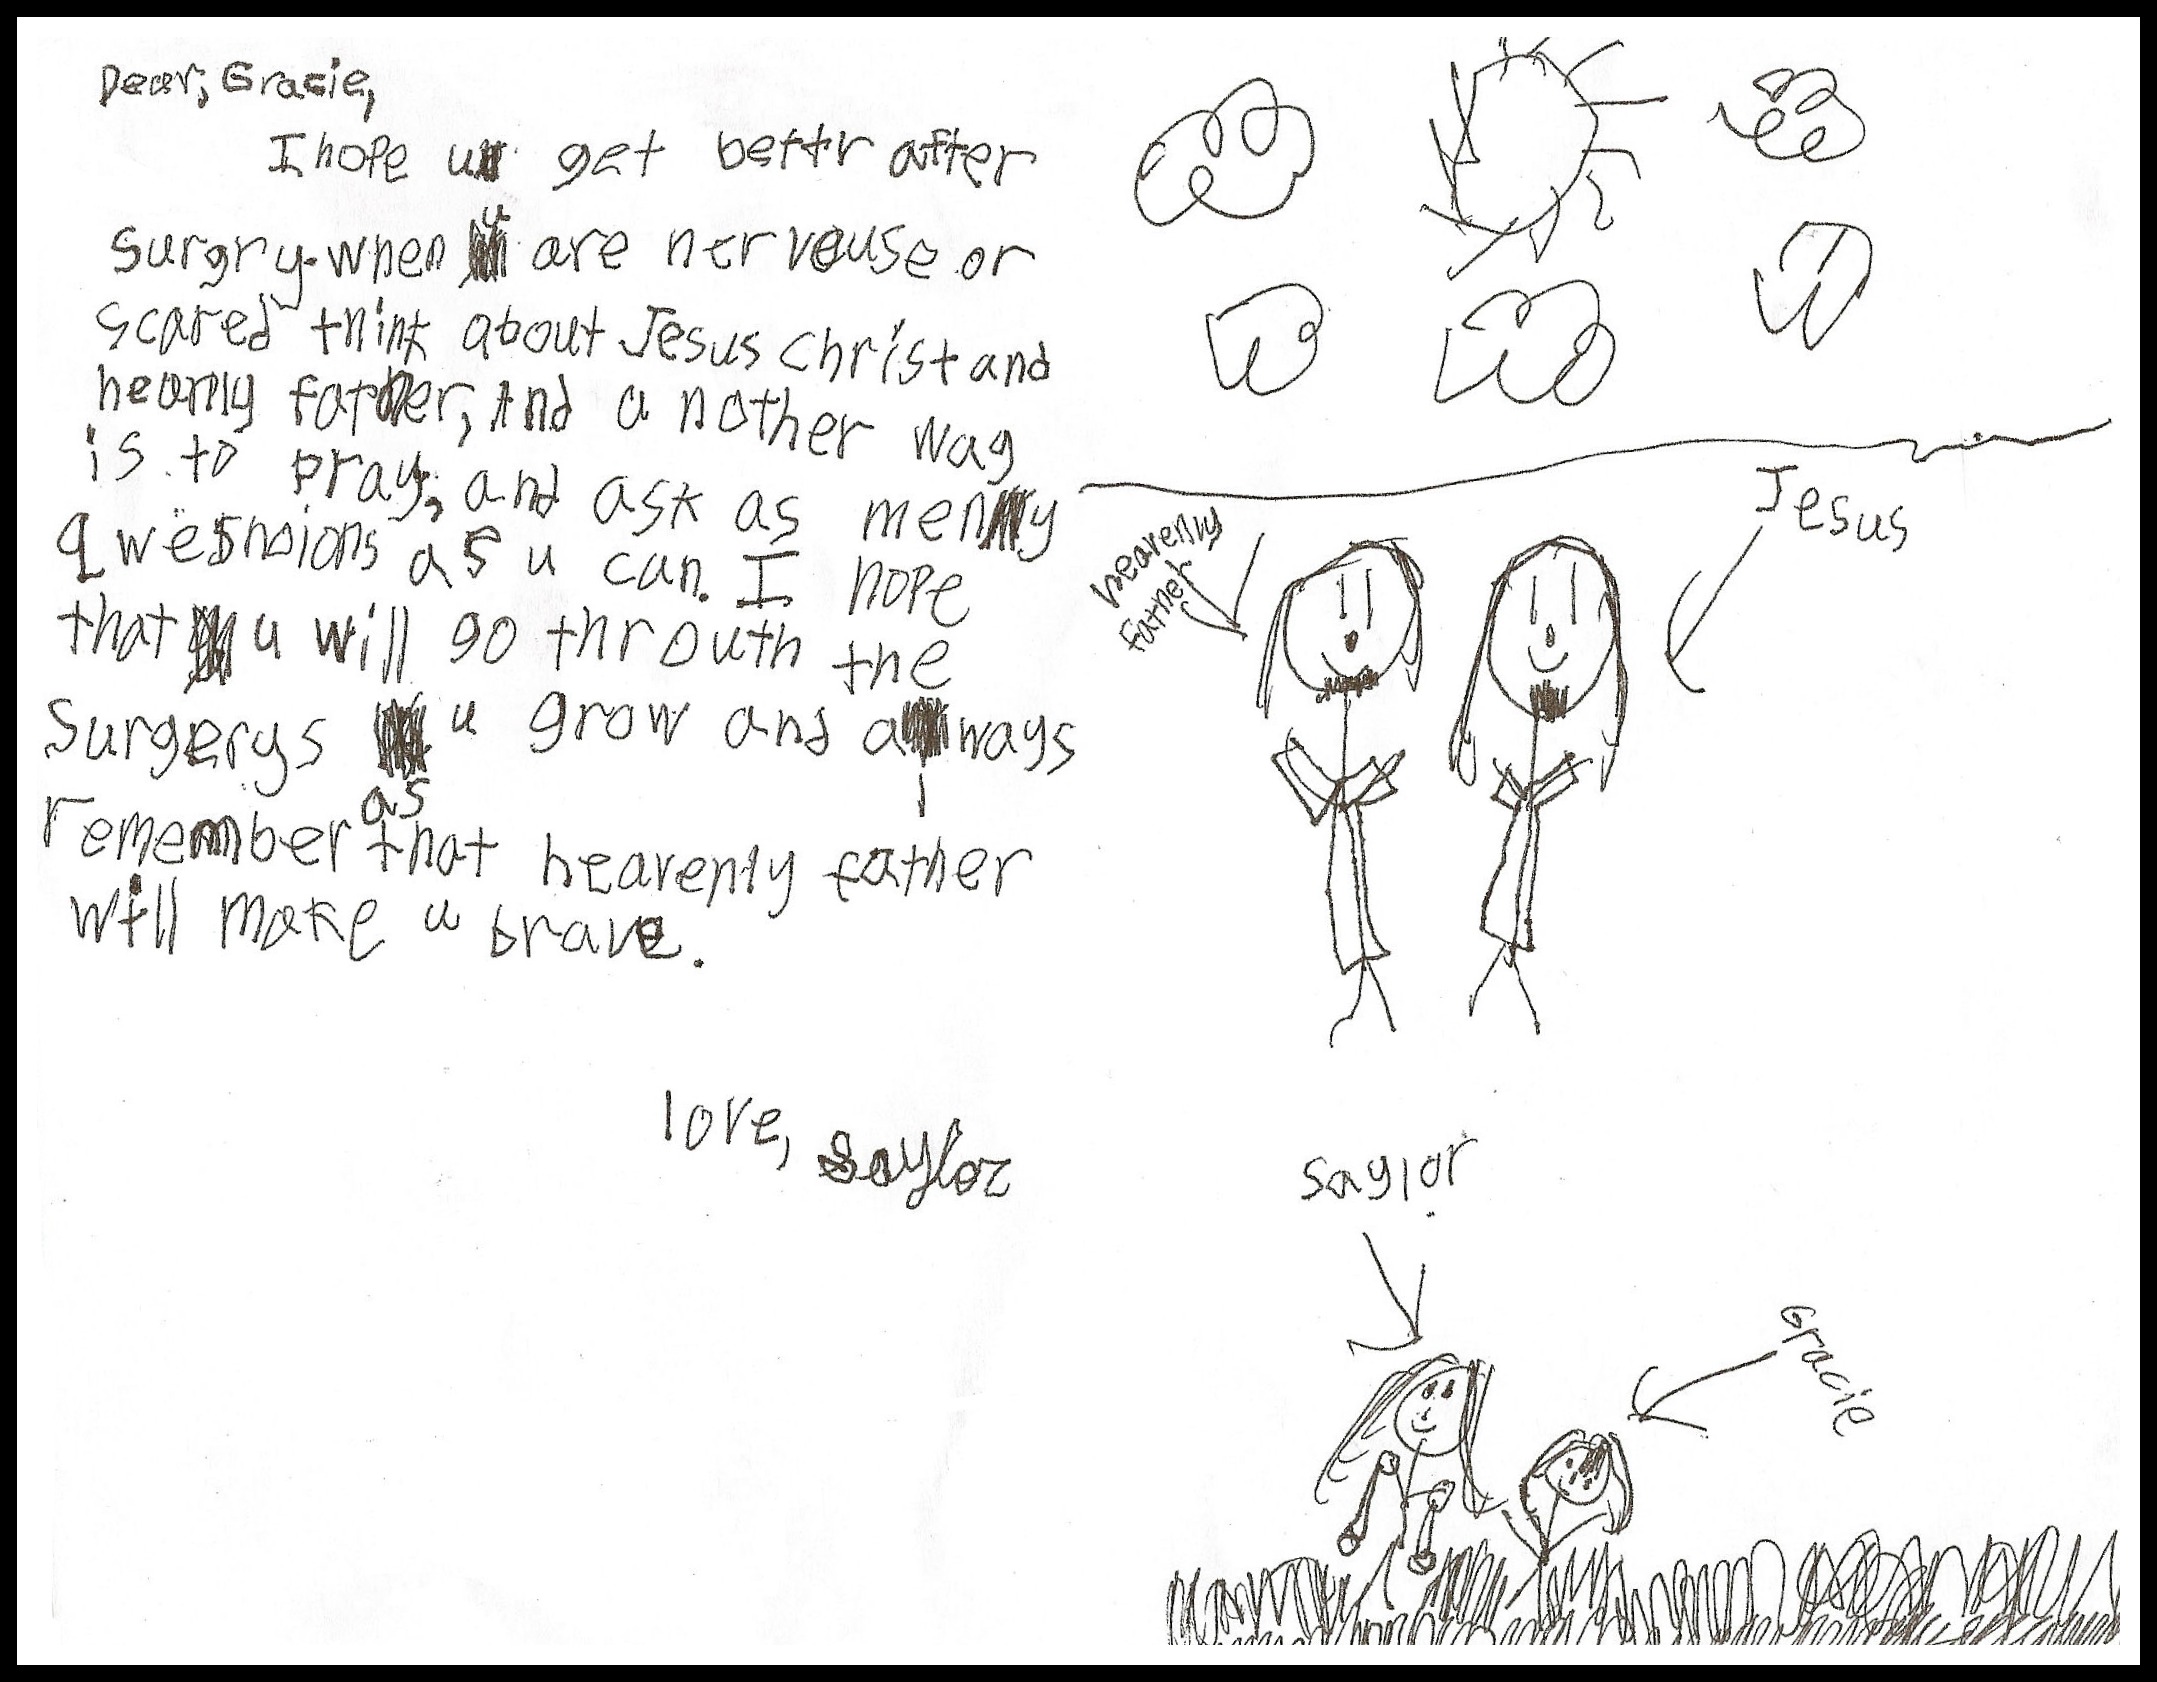 Dear, Gracie,
I hope u get bettr after
surgry. when u are nerveuse or
scared think about Jesus Christ and
heanly father, And a nother way
is to pray, and ask as menny
qwesnoions as u can. I hope
that u will go throuth the
surgerys as u grow and always
remember that heavenly father
will make u brave.
love, Saylor
Jesus
heavenly
Father
Saylor
Gracie